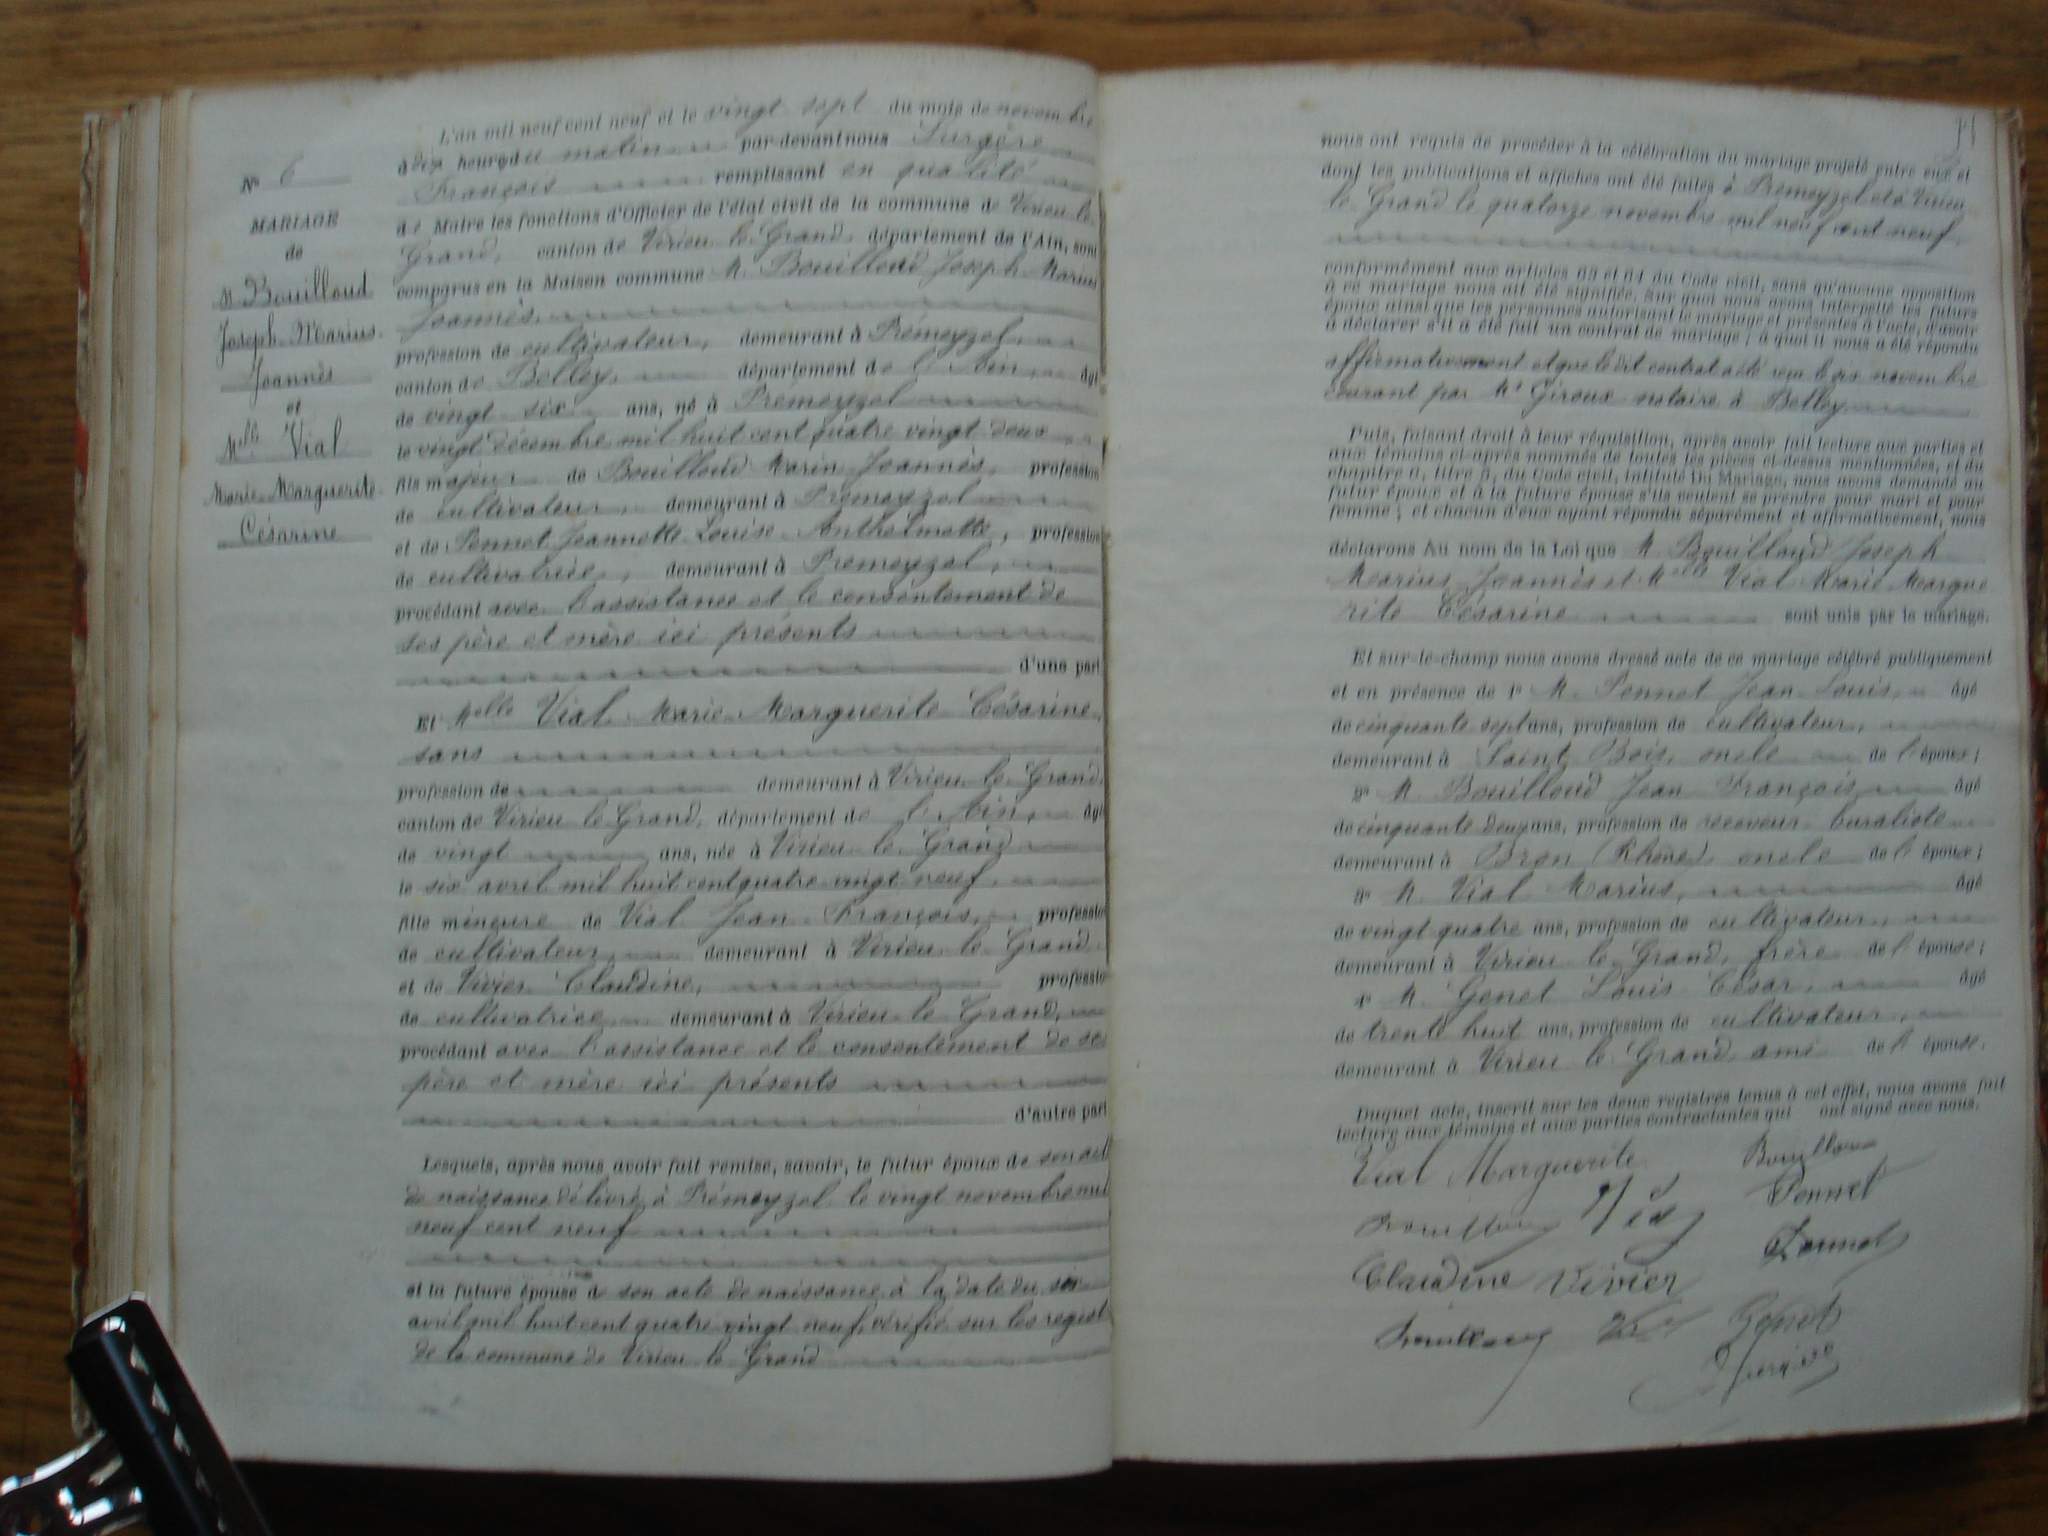 No 6
MARIAGE
de
M. Bouilloud
Joseph Marius
Joannès
et
Mlle Vial
Marie Marguerite
Césarine
L'an mil neuf cent neuf et le vingt sept du mois de novembre
à dix heures du matin par-devant nous Surgère
François remplissant en qualité
de Maire les fonctions d'Officier de l'état civil de la commune de Virieu le
Grand, canton de Virieu le Grand, département de l'Ain, sont
comparus en la Maison commune M. Bouilloud Joseph Marius
Joannès
profession de cultivateur, demeurant à Prémeyzel,
canton de Belley, département de l'Ain, âgé
de vingt six ans, né à Prémeyzel
le vingt décembre mil huit cent quatre vingt deux
fils majeur de Bouilloud Marin Joannès, profession
de cultivateur, demeurant à Prémeyzel
et de Pennet Jeannette Louise Anthelmette, profession
de cultivatrice, demeurant à Premeyzel,
procédant avec l'assistance et le consentement de
ses père et mère ici présents
d'une part
Et Melle Vial Marie Marguerite Césarine,
sans
profession de demeurant à Virieu le Grand,
canton de Virieu le Grand, département de l'Ain, âgé
de vingt ans, née à Virieu le Grand
le six avril mil huit cent quatre vingt neuf,
fille mineure de Vial Jean François, professio
de cultivateur, demeurant à Virieu le Grand
et de Vivier Claudine, professio
de cultivatrice, demeurant à Virieu le Grand,
procédant avec l'assistance et le consentement de se
père et mère ici présents
d'autre part
Lesquels, après nous avoir fait remise, savoir, le futur époux de son act
de naissance délivré à Prémeyzel le vingt novembre mil
neuf cent neuf
et la future épouse de son acte de naissance à la date du six
avril mil huit cent quatre vingt neuf, vérifié sur les regist
de la commune de Virieu le Grand
nous ont requis de procéder à la célébration du mariage projeté entre eux et
dont les publications et affiches ont été faites à Prémeyzel et à Virieu
le Grand le quatorze novembre mil neuf cent neuf
conformément aux articles 63 et 64 du Code civil, sans qu'aucune opposition
à ce mariage nous ait été signifiée. Sur quoi nous avons interpellé les futurs
époux ainsi que les personnes autorisant le mariage et présentes à l'acte, d'avoir
à déclarer s'il a été fait un contrat de mariage ; à quoi il nous a été répondu
affirmativement et que le dit contrat a été reçu le six novembre
courant par Me Giroux notaire à Belley
Puis, faisant droit à leur réquisition, après avoir fait lecture aux parties et
aux témoins ci-après nommés de toutes les pièces ci-dessus mentionnées, et du
chapitre 6, titre 5, du Code civil, intitulé Du Mariage, nous avons demandé au
futur époux et à la future épouse s'ils veulent se prendre pour mari et pour
femme ; et chacun d'eux ayant répondu séparément et affirmativement, nous
déclarons Au nom de la Loi que M. Bouilloud Joseph
Marius Joannès et Melle Vial Marie Margue
rite Césarine sont unis par le mariage.
Et sur-le-champ nous avons dressé acte de ce mariage célébré publiquement
et en présence de 1° M. Pennet Jean Louis, âgé
de cinquante sept ans, profession de cultivateur,
demeurant à Saint Bois, oncle de l'époux ;
2° M. Bouilloud Jean François, âgé
de cinquante deux ans, profession de receveur buraliste
demeurant à Bron (Rhône) oncle de l'époux ;
3° M. Vial Marius, âgé
de vingt quatre ans, profession de cultivateur,
demeurant à Virieu le Grand, frère de l'épouse ;
4° M. Genet Louis César, âgé
de trente huit ans, profession de cultivateur,
demeurant à Virieu le Grand ami de l'épouse.
Duquel acte, inscrit sur les deux registres tenus à cet effet, nous avons fait
lecture aux témoins et aux parties contractantes qui ont signé avec nous.
Vial Marguerite Bouilloud
Pennet
Bouilloud Pennet
Claudine Vivier
Bouilloud Vial Genet
Surgère